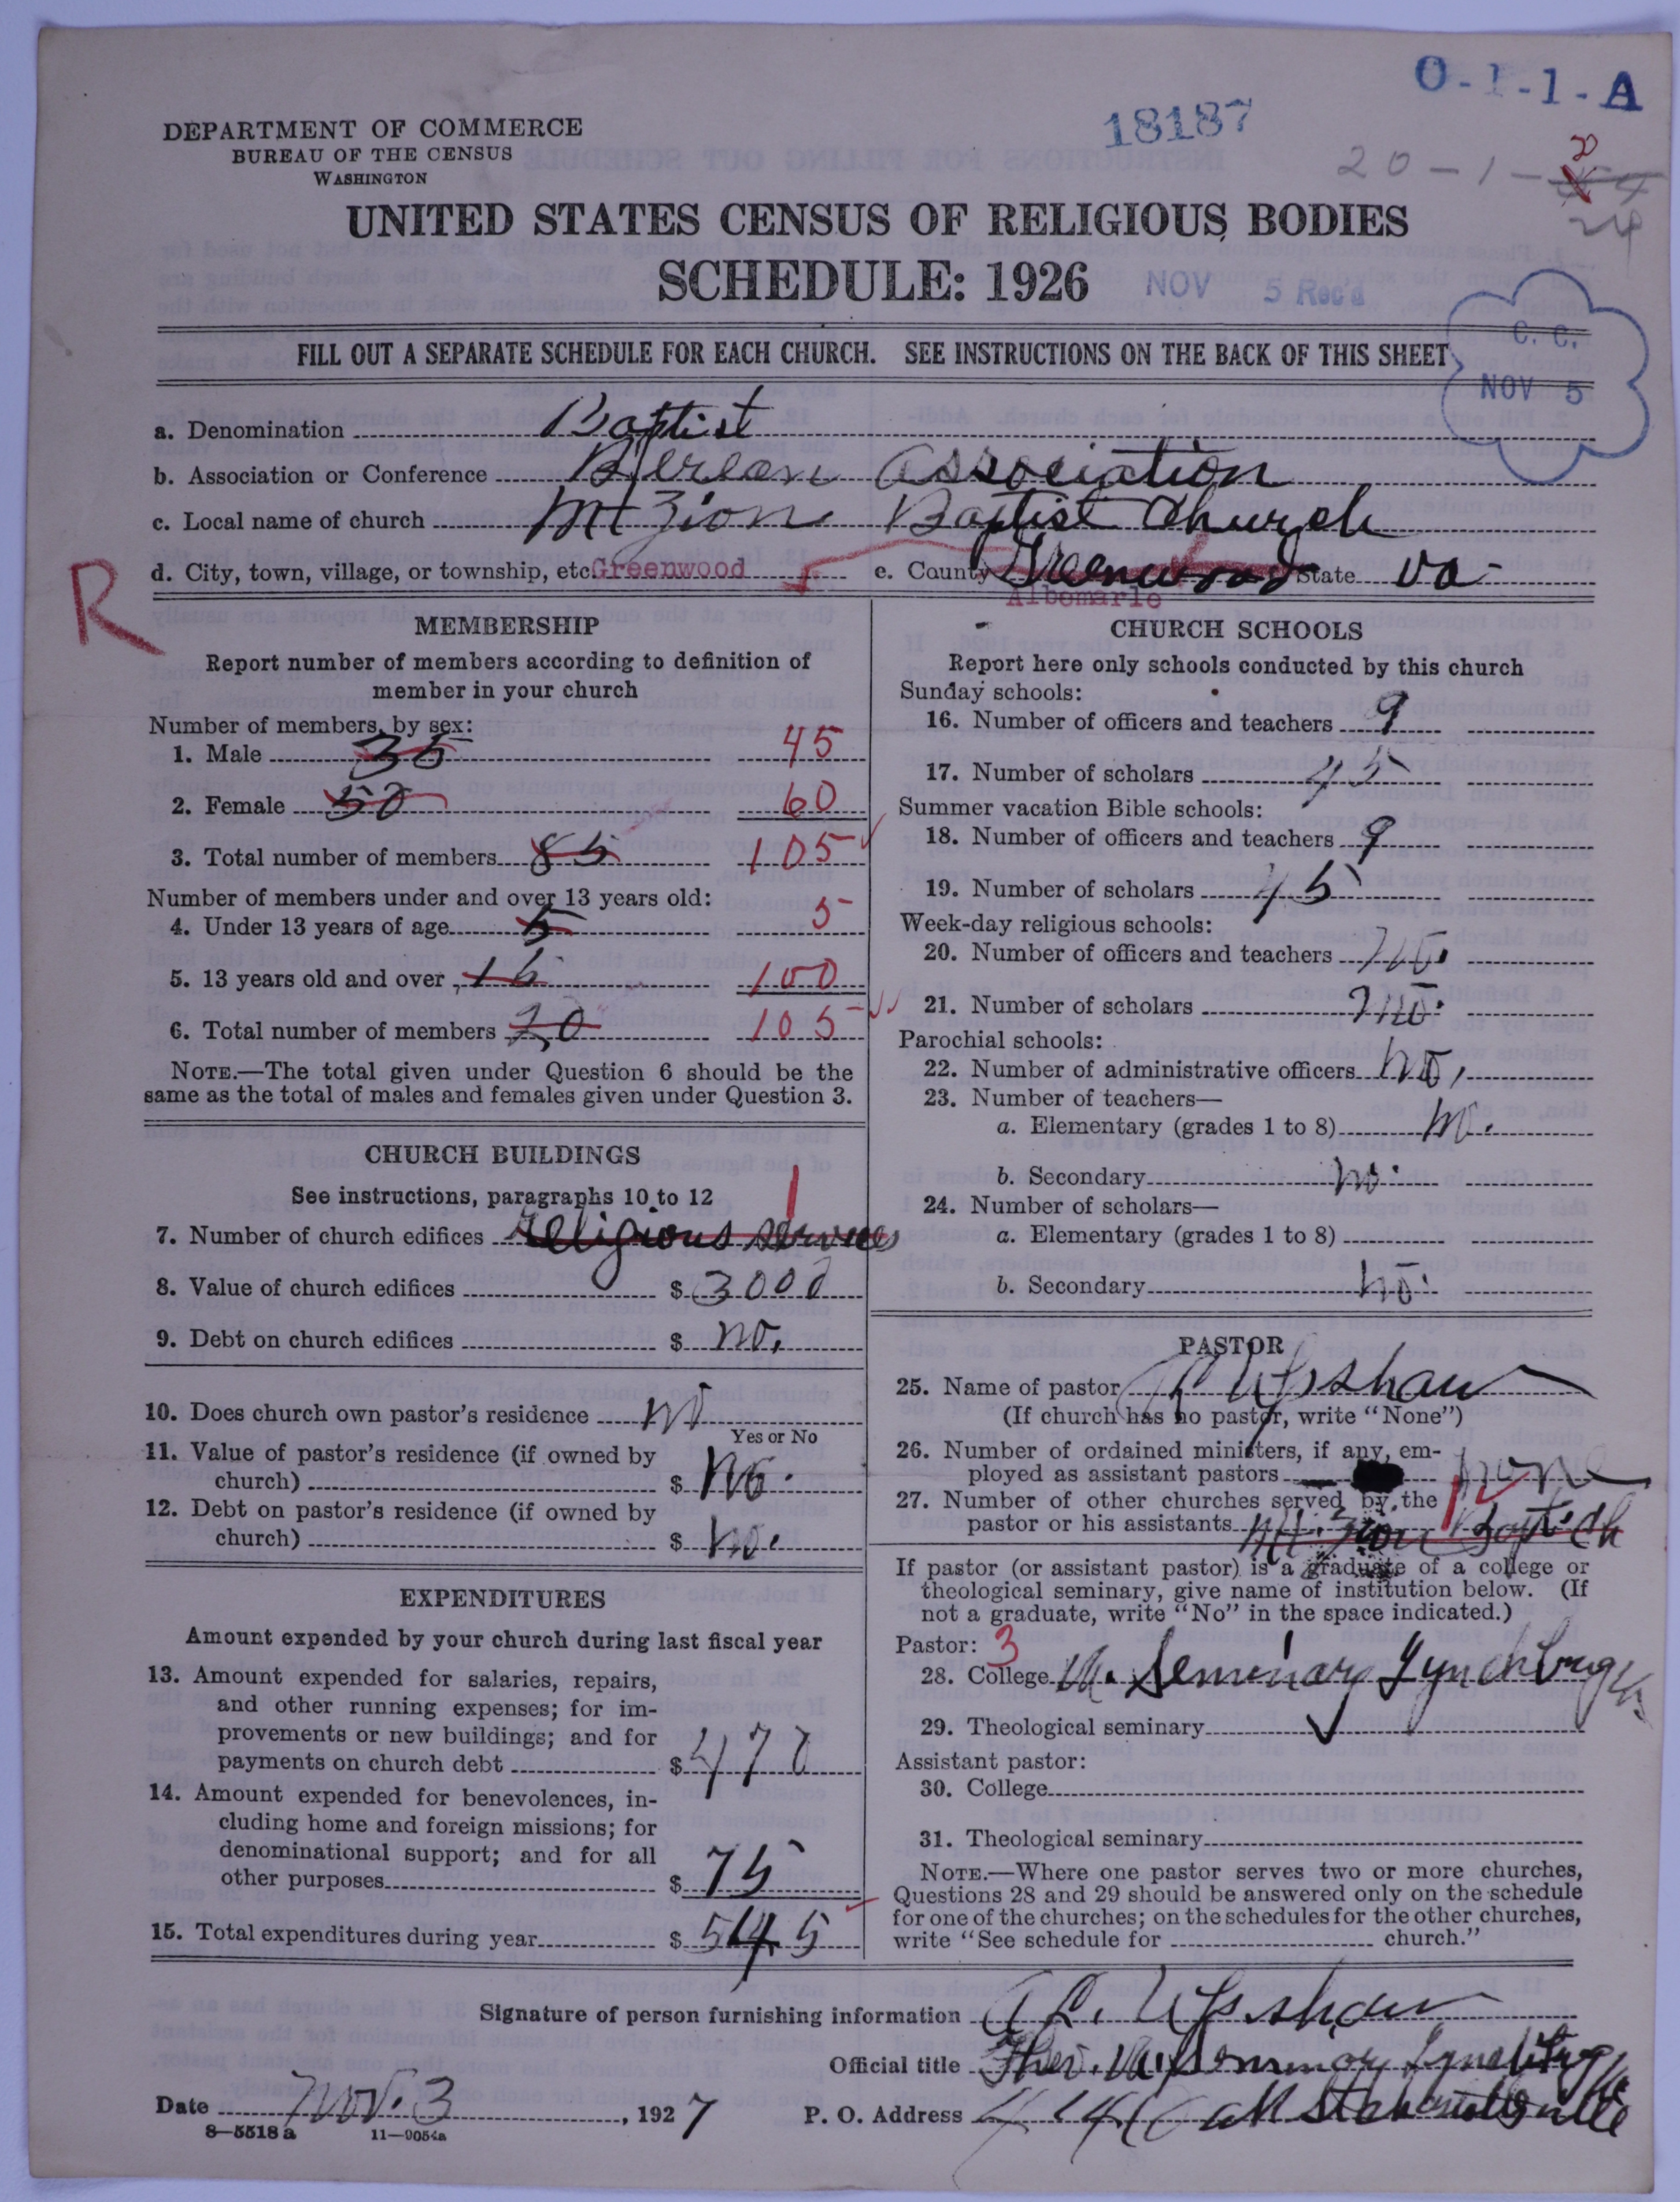 O-1-1-A
18187
DEPARTMENT OF COMMERCE
BUREAU OF THE CENSUS
WASHINGTON
20-1-
24
UNITED STATES CENSUS OF RELIGIOUS BODIES
SCHEDULE: 1926
NOV 5 Rec'd
C. C.
NOV 5
FILL OUT A SEPARATE SCHEDULE FOR EACH CHURCH. SEE INSTRUCTIONS ON THE BACK OF THIS SHEET
a. Denomination Baptist
b. Association or Conference Berean Association
c. Local name of church Mt Zion Baptist Church
d. City, town, village, or township, etc. Greenwood e. County Greenwood State Va
Albemarle
R
MEMBERSHIP
Report number of members according to definition of
member in your church
Number of members, by sex:
1. Male 35 45
2. Female 50 60
3. Total number of members 85 105
Number of members under and over 13 years old:
4. Under 13 years of age 5 5
5. 13 years old and over 15 100
6. Total number of members 20 105
NOTE.—The total given under Question 6 should be the
same as the total of males and females given under Question 3.
CHURCH BUILDINGS
See instructions, paragraphs 10 to 12
7. Number of church edifices religious services 1
8. Value of church edifices $ 3000
9. Debt on church edifices $ no.
10. Does church own pastor's residence no
Yes or No
11. Value of pastor's residence (if owned by
church) $ no.
12. Debt on pastor's residence (if owned by
church) $ no.
EXPENDITURES
Amount expended by your church during last fiscal year
13. Amount expended for salaries, repairs,
and other running expenses; for im-
provements or new buildings; and for
payments on church debt $ 470
14. Amount expended for benevolences, in-
cluding home and foreign missions; for
denominational support; and for all
other purposes $ 75
15. Total expenditures during year $ 545
CHURCH SCHOOLS
Report here only schools conducted by this church
Sunday schools:
16. Number of officers and teachers 9
17. Number of scholars 45
Summer vacation Bible schools:
18. Number of officers and teachers 9
19. Number of scholars 45
Week-day religious schools:
20. Number of officers and teachers no.
21. Number of scholars no.
Parochial schools:
22. Number of administrative officers no.
23. Number of teachers—
a. Elementary (grades 1 to 8) no.
b. Secondary no.
24. Number of scholars—
a. Elementary (grades 1 to 8)
b. Secondary no.
PASTOR
25. Name of pastor Upshaw
(If church has no pastor, write "None")
26. Number of ordained ministers, if any, em-
ployed as assistant pastors none
27. Number of other churches served by the
pastor or his assistants Mt. Zion Bapt. Ch 1
If pastor (or assistant pastor) is a graduate of a college or
theological seminary, give name of institution below. (If
not a graduate, write "No" in the space indicated.)
Pastor: 3
28. College Va. Seminary Lynchburg Va
29. Theological seminary
Assistant pastor:
30. College
31. Theological seminary
NOTE.—Where one pastor serves two or more churches,
Questions 28 and 29 should be answered only on the schedule
for one of the churches; on the schedules for the other churches,
write "See schedule for church."
Signature of person furnishing information Upshaw
Official title Theo. Va. Seminary Lynchburg Va
Date Nov. 3, 1927 P. O. Address
8—5518 a 11—9054a